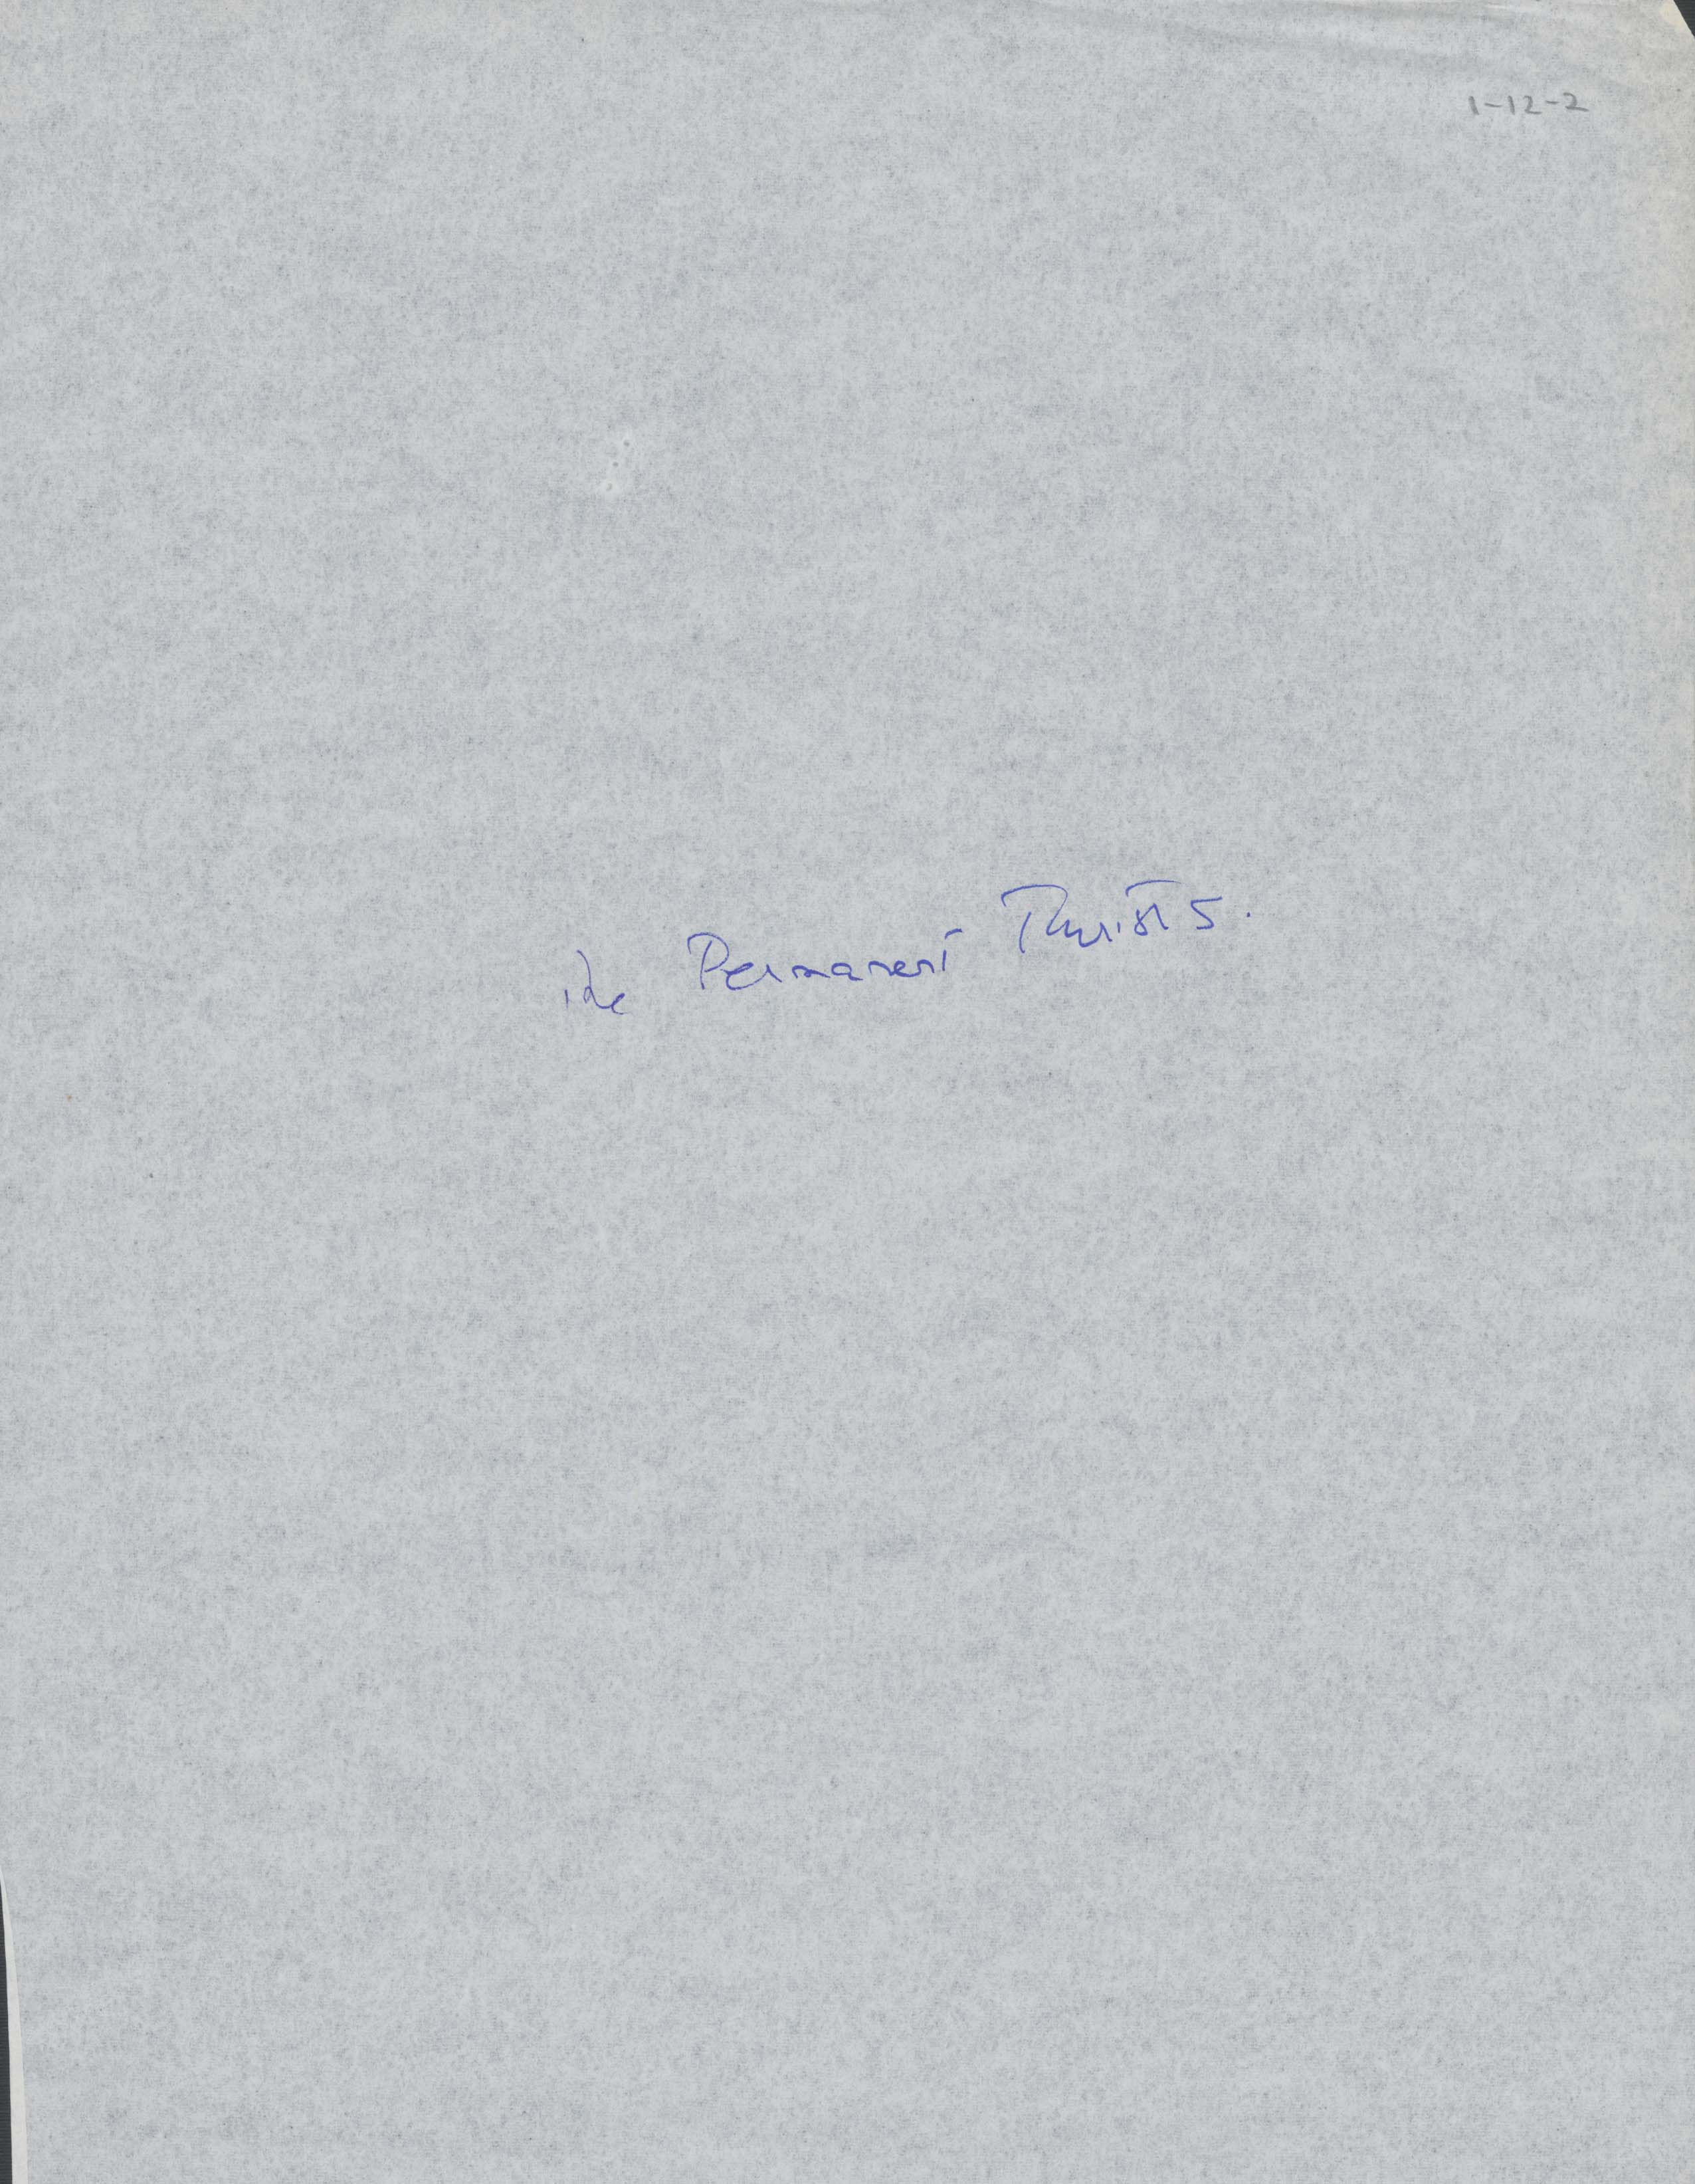 1-12-2
The Permanent Tourists.